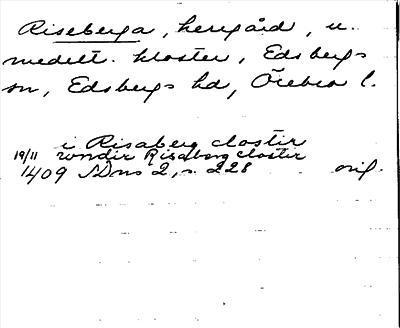 Riseberga, herrgård, u.
medelt. kloster, Edsbergs
sn, Edsbergs hd, Örebro l.
i Risaberg closter
19/11 wondir Risaborg closter
1409 SDns 2, s. 228 orig.